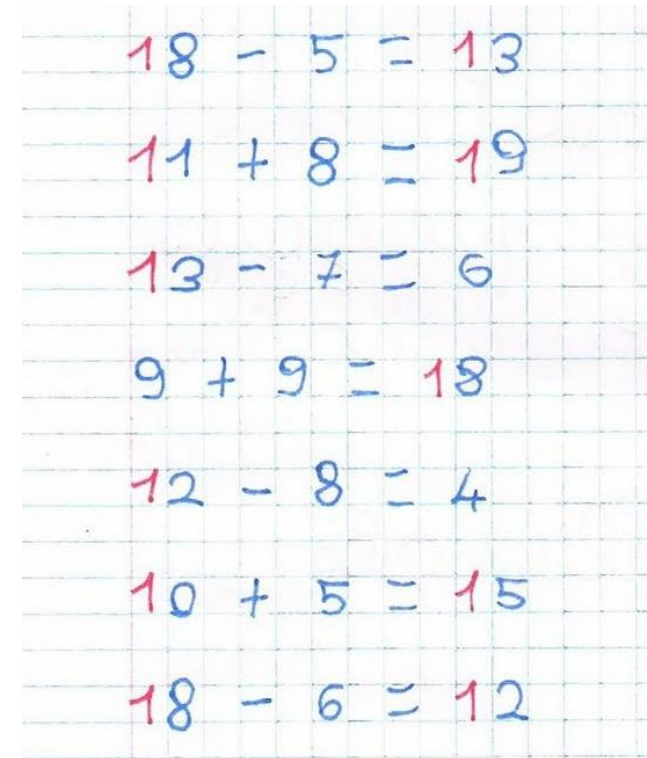 18 - 5 = 13
11 + 8 = 19
13 - 7 = 6
9 + 9 = 18
12 - 8 = 4
10 + 5 = 15
18 - 6 = 12